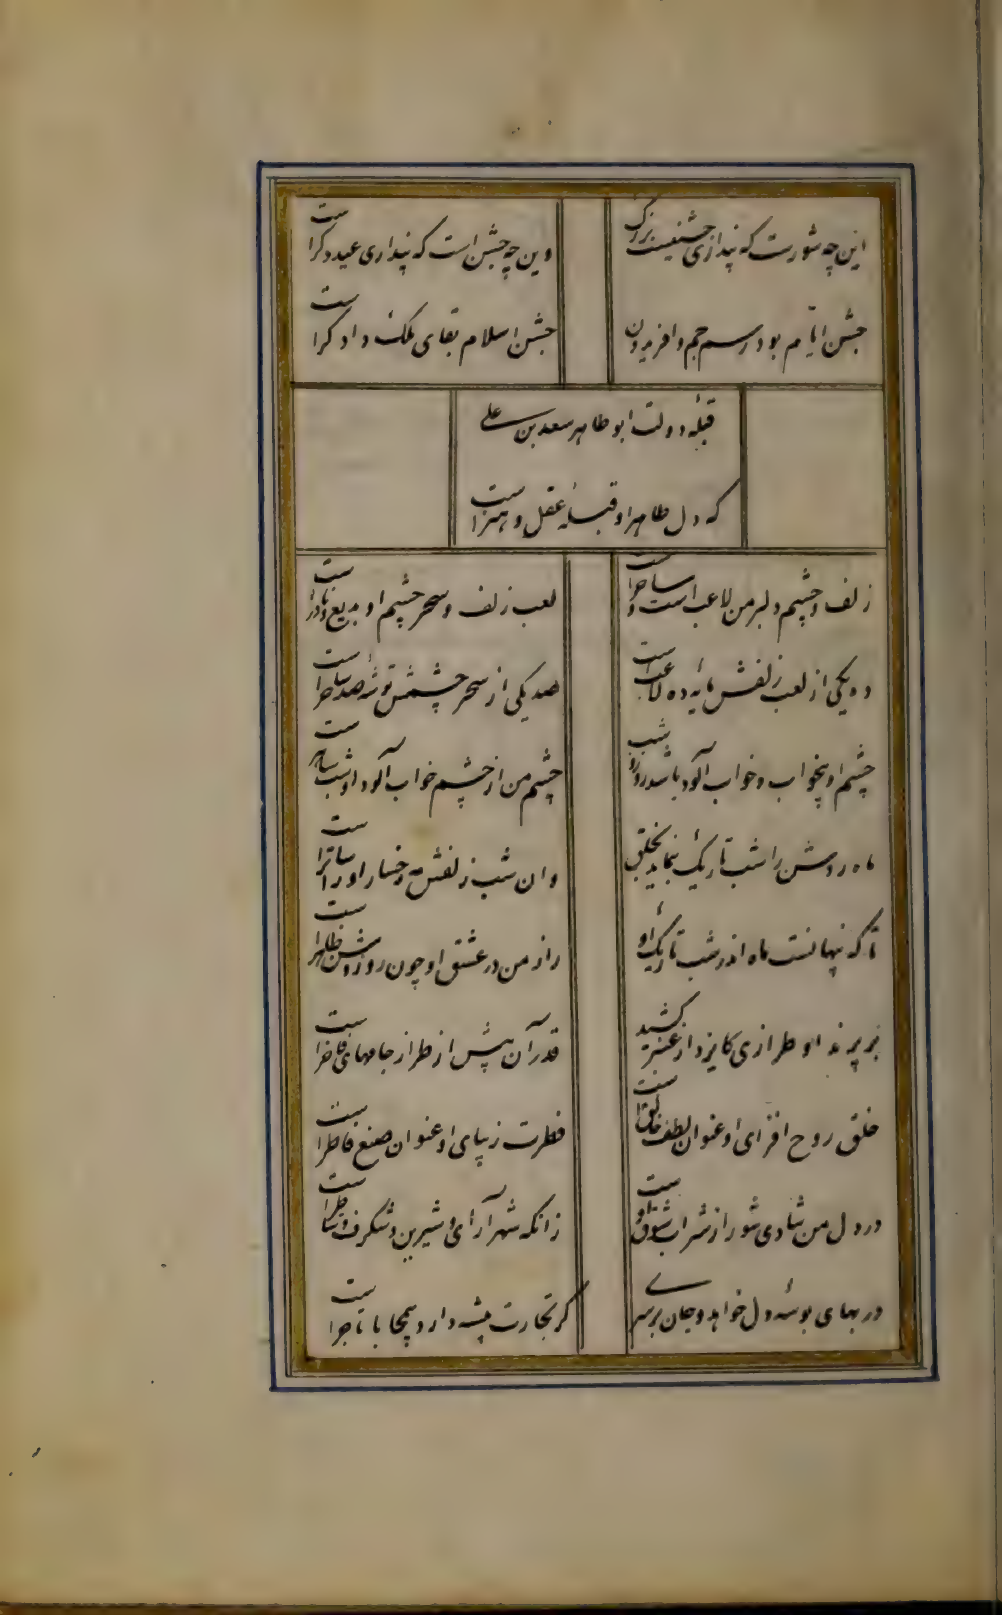 این چه شورست که پنداری جشنیست بزرگ
وین چه جشن است که پنداری عید دگراست
جشن ایام بود رسم جم و افریدون
جشن اسلام بقای ملک دادگراست
قبلهٔ دولت ابو طاهر سعد بن علی
که دل طاهر او قبلهٔ عقل و هنراست
زلف و چشم دلبر من لاعب است و ساحراست
لعب زلف و سحر چشم او بدیع و نادراست
ده یکی از لعب زلفش مایهٔ ده لاعب است
صد یکی از سحر چشمش توشهٔ صد ساحراست
چشم او بیخواب و خواب آلود باشد روز و شب
چشم من از چشم خواب آلود او شب ساهراست
ماه روشن را شب تاریک بنماید بخلق
وان شب زلفش مه رخسار او را ساتراست
تا که پنهانست ماه اندر شب تاریک او
راز من در عشق او چون روز روشن ظاهراست
بر پرند او طرازی کایزد از عنبر کشید
قدر آن بیش از طراز جامهای فاخراست
خلق روح افزای او عنوان لطف خالق است
فطرت زیبای او عنوان صنع فاطراست
در دل من شادی شور از شراب شوق اوست
زانکه شهرآرای و شیرین و شگرف و شاطراست
در بهای بوسهٔ دل خواهد و جان بر سری
گر تجارت پیشه دارد همچو بابا تاجراست